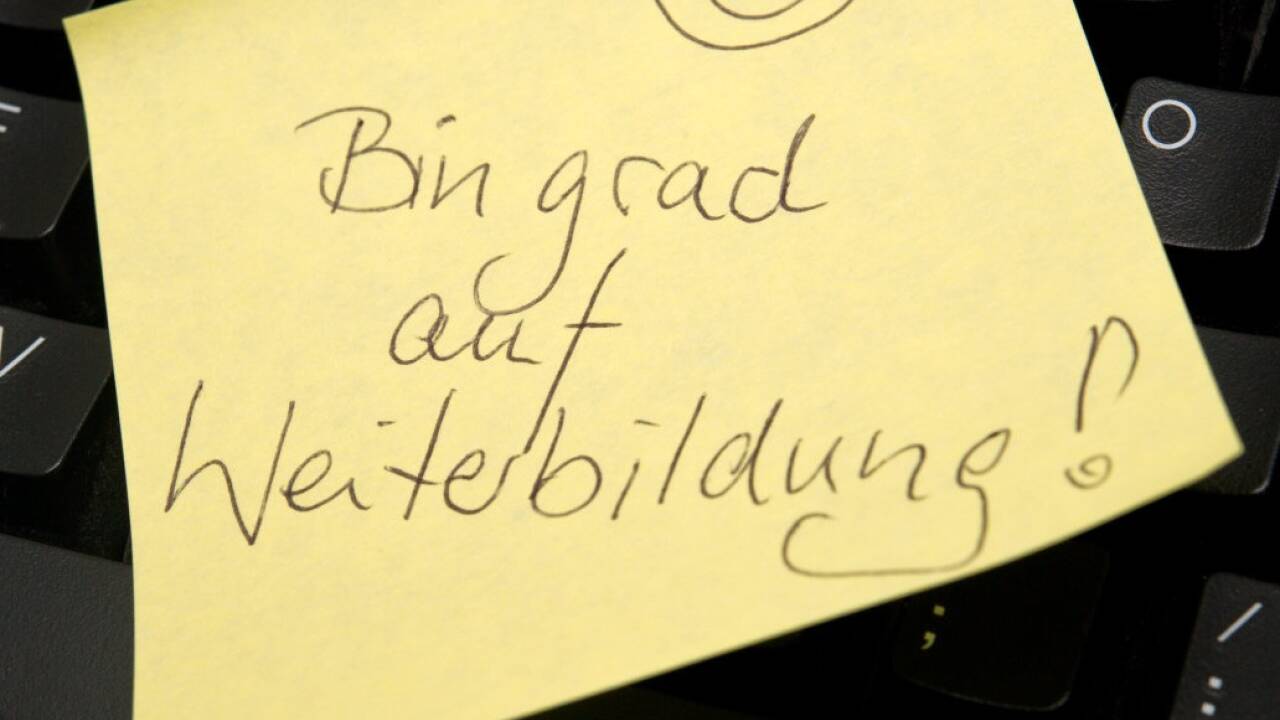 Bin grad
auf
Weiterbildung!
O
;